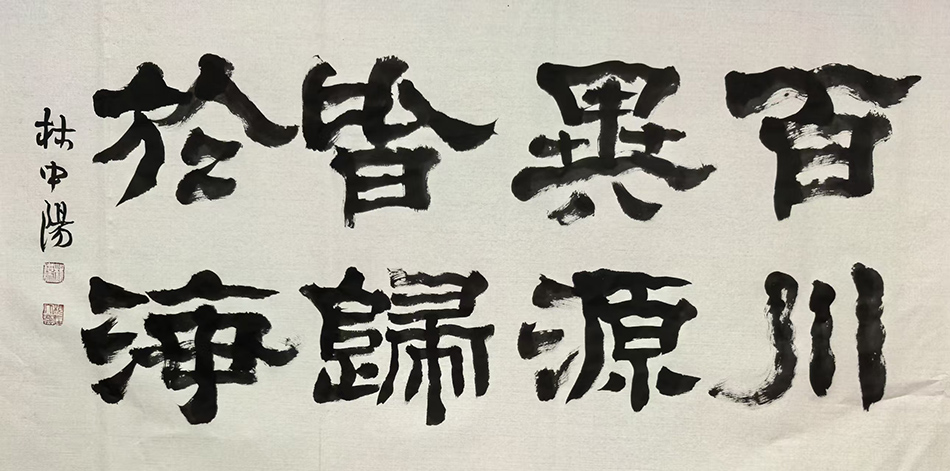 百川
異源
皆歸
於海
林中陽